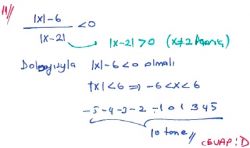 11/
|x|-6 / |x-2| < 0
|x-2|>0 (x≠2
|x|-6<0 olmalı
|x|<6 ⇒ -6<x<6
-5 -4 -3 -2 -1 0 1 3 4 5
10 tane
CEVAP: D